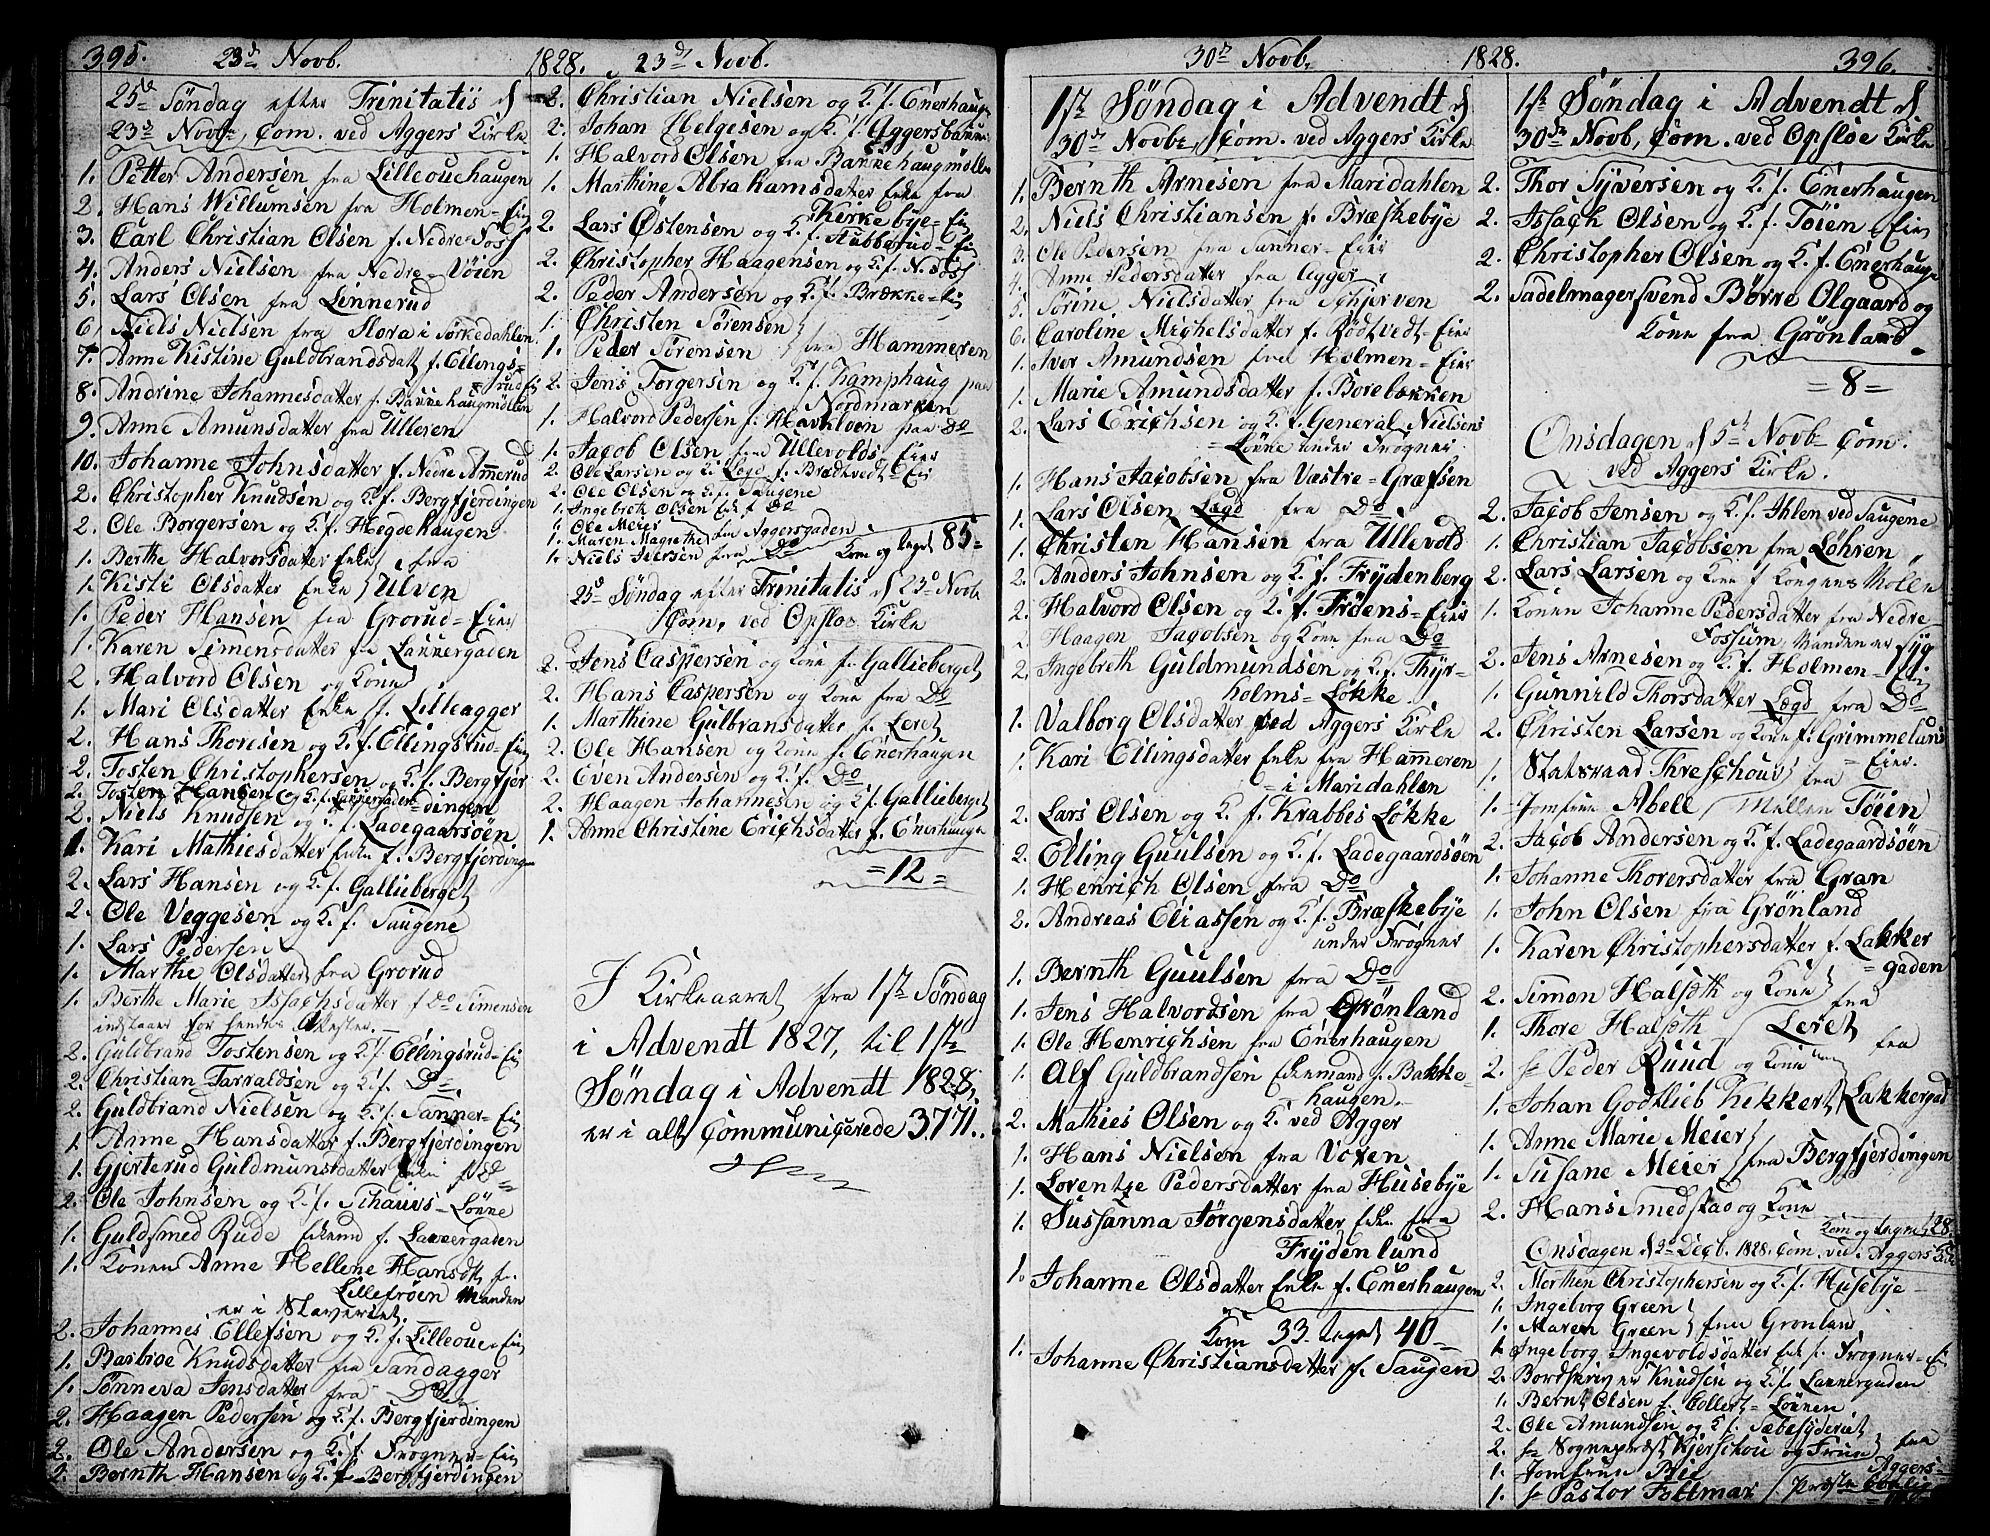 395. 23d Novb. 1828. 23d Novb.
25de Søndag efter Trinitatis d
23d Novb, Com. ved Aggers Kirke
1. Petter Andersen fra Lilleouchaugen
2. Hans Willumsen fra Holmen=Eie
3. Carl Christian Olsen f. Nedre=Foss
4. Anders Nielsen fra Nedre=Vøien
5. Lars Olsen fra Linnerud
6. Niels Nielsen fra Flora i Sørkedahlen
7. Anne Kistine Guldbrandsdat f. Ellings=
rud Eie
8. Andrine Johannesdatter f. Bannehaugmøllen
9. Anne Amunsdatter fra Ulleren
10. Johanne Johnsdatter f. Nedre Ammerud
2. Christopher Knudsen og K. f. Bergfjerdingen
2. Ole Borgersen og K. f. Hegdehaugen
1. Berthe Halvorsdatter Enke fra
1. Kisti Olsdatter Enke Ulven
1. Peder Hansen fra Grorud=Eier
1. Karen Simensdatter fra Lakkergaden
2. Halvord Olsen og Kone
1. Mari Olsdatter Enke f. Lilleagger
2. Hans Thoresen og K. f. Ellingsrud=Eie
2. Tosten Christophersen og K. f. Bergfjer
2. Tosten Hansen og K. f. Lakkergaden =dingen
2. Niels Knudsen og K. f. Ladegaardsøen
1. Kari Mathiesdatter Enke f. Bergfjerdingen
2. Lars Hansen og K. f. Gallieberget
2. Ole Veggesen og K. f. Saugene
1. Lars Pedersen
1. Marthe Olsdatter fra Grorud
1. Berthe Marie Issachsdatter f Do Simensen
indstaaer for hendes
2. Guldbrand Tostensen og K. f. Ellingsrud=Eie
2. Christian Tarraldsen og K. f. Do
2. Guldbrand Nielsen og K. f. Sanner=Eie
1. Anne Hansdatter f. Bergfjerdingen
1. Gjerterud Guldmunsdatter Enke f Do
2. Ole Johnsen og K. f. Schauvs=Løkke
1. Guldsmed Rude Ekemd f. Lakkergaden
1. Konen Anne Hellene Hansdt f.
Lillefrøen Manden
er i Slaveriet.
2. Johannes Ellefsen og K. f. Lilleouer=Eie
1. Barbroe Knudsdatter fra Sandagger
1. Sønneva Jensdatter fra Do
2. Haagen Pedersen og K. f. Bergfjerdingen
2. Ole Andersen og K. f. Frogner=Eie
2. Bernth Hansen og K. f. Bergfjerdingen
2. Christian Nielsen og K. f. Enerhaugen
2. Johan Helgesen og K. f. Aggersbakken
1. Halvord Olsen fra Bannehaugmøllen
1. Marthine Abrahamsdatter Enke fra
Kirkebye=Eie
2. Lars Østensen og K. f. Stubberud=Eie
2. Christopher Haagensen og K. f. N. Foss
2. Peder Andersen og K. f. Brække=Eie
1. Christen Sørensen
1. Peder Sørensen fra Hammeren
2. Jens Torgersen og K. f. Kamphaug paa
Nordmarken
1. Halvord Pedersen f. Havnloen paa Do
1. Jacob Olsen fra Ullevolds=Eier
2. Ole Larsen og K. Lægd f. Brædtvedt=Eie
2. Ole Olsen og K. f. Saugene
1. Ingebreth Olsen Enk f Do
1. Ole Meier
1. Maren Magrethe fra Aggersgaden
1. Niels Iversen fra Do Kom og taget 85=
25d Søndag efter Trinitatis d 23d Novb
Com, ved Opsloe Kirke
2. Jens Caspersen og Kone f. Gallieberget
2. Hans Caspersen og Kone fra Do
1. Marthine Gulbransdatter f. Leret
2. Ole Hansen og Kone f. Enerhaugen
2. Even Andersen og K. f. Do
2. Haagen Johannesen og K. f. Gallieberget
1. Anne Christine Erichsdatter f. Enerhaugen
=12=
I Kirkeaaret fra 1ste Søndag
i Advendt 1827, til 1ste
Søndag i Advendt 1828,
er i alt Communicerede 3771.
30te Novb. 1828. 396.
1ste Søndag i Advendt d
30te Novbr, Com. ved Aggers Kirke
1. Bernth Arnesen fra Maridahlen
2. Niels Christiansen f. Bræskebye
3. Ole Pedersen fra Sanner=Eier
4. Anne Pedersdatter fra Agger
5. Sørine Nielsdatter fra Schjerven
6. Caroline Michelsdatter f. Rødtvedt=Eier
1. Iver Amundsen fra Holmen=Eier
1. Marie Amundsdatter f. Borebækken
2. Lars Erichsen og K. f. General Nielsens
=Løkke under Frogner
1. Hans Jacobsen fra Væstre=Græfsen
1. Lars Olsen Lægd fra Do
1. Christen Hansen fra Ullevold
2. Anders Johnsen og K. f. Frydenberg
2. Halvord Olsen og K. f. Frøens=Eier
2. Haagen Jacobsen og Kone fra Do
2. Ingebreth Guldmundsen og K. f. Thyr=
holms=Løkke
1. Valborg Olsdatter ved Aggers Kirke
1. Kari Ellingsdatter Enke fra Hammeren
=i Maridahlen
2. Lars Olsen og K. f. Krabbes Løkke
2. Elling Guulsen og K. f. Ladegaardsøen
1. Henrich Olsen fra Do
2. Andreas Eliassen og K. f. Bræskebye
under Frogner
1. Bernth Guulsen fra Do
1. Jens Halvordsen fra Grønland
1. Ole Henrichsen fra Enerhaugen
1. Alf Guldbrandsen Ekemand f. Bakke=
haugen.
2. Mathies Olsen og K. ved Agger
1. Hans Nielsen fra Voxen
1. Lorentze Pedersdatter fra Husebye
1. Sussanna Jørgensdatter Enke fra
Frydenlund
1. Johanne Olsdatter Enke f. Enerhaugen
Kom 33. taget 40=
1. Johanne Christiansdatter f. Saugen
1ste Søndag i Advendt d
30te Novb, Com. ved Opsloe Kirke
2. Thor Syversen og K. f. Enerhaugen
2. Issach Olsen og K. f. Tøien=Eie
2. Christopher Olsen og K. f. Enerhauge
2. Sadelmagersvend Børre Olgaard og
Kone fra Grønland.
=8=
Onsdagen d 5te Novb Com.
ved Aggers Kirke.
2. Jacob Jensen og K. f. Ihlen ved Saugene
1. Christian Jacobsen fra Løhren
2. Lars Larsen og Kone f Kongens Mølle
1. Konen Johanne Pedersdatter fra Nedre
Fossum Manden er Syg
2. Jens Arnesen og K. f. Holmen=Eie
1. Gunnild Thorsdatter Lægd fra Do
2. Christen Larsen og Kone f. Grimmelund
=Eier.
1. Statsraad Threschow fra
1. Jomfrue Abell Mellen Tøien
2. Jacob Andersen og K. f. Ladegaardsøen
1. Johanne Thorersdatter fra Gran
1. John Olsen fra Grønland
1. Karen Christophersdatter f. Lakker
=gaden
2. Simon Halseth og Kone fra
1. Thore Halseth Leret
2. Hr Peder Ruud og Kone fra
1. Johan Godtlieb Kekkert Lakkergad
1. Anne Marie Meier
1. Susane Meier fra Bergfjerdingen
2. Hans Smedstad og Kone
Kom og tagne 28.
Onsdagen d 2de Decb. 1828. Com. ved Aggers Kirke
2. Morthen Christophersen og K. f. Husebye
1. Ingeborg Green
1. Maren Green fra Grønland
1. Ingeborg Ingevoldsdatter Enk f. Frogner=Ei
2. Bordskriver Knudsen og K. f. Lakkergaden
1. Bernt Olsen f. Collett=Løkken
2. Ole Amundsen og K. f. Sæbesyderiet
2. Hr Sogneprest Kjerschou og Frue fra
1. Jomfrue Brie Aggers=
1. Hr Pastor Foltmar